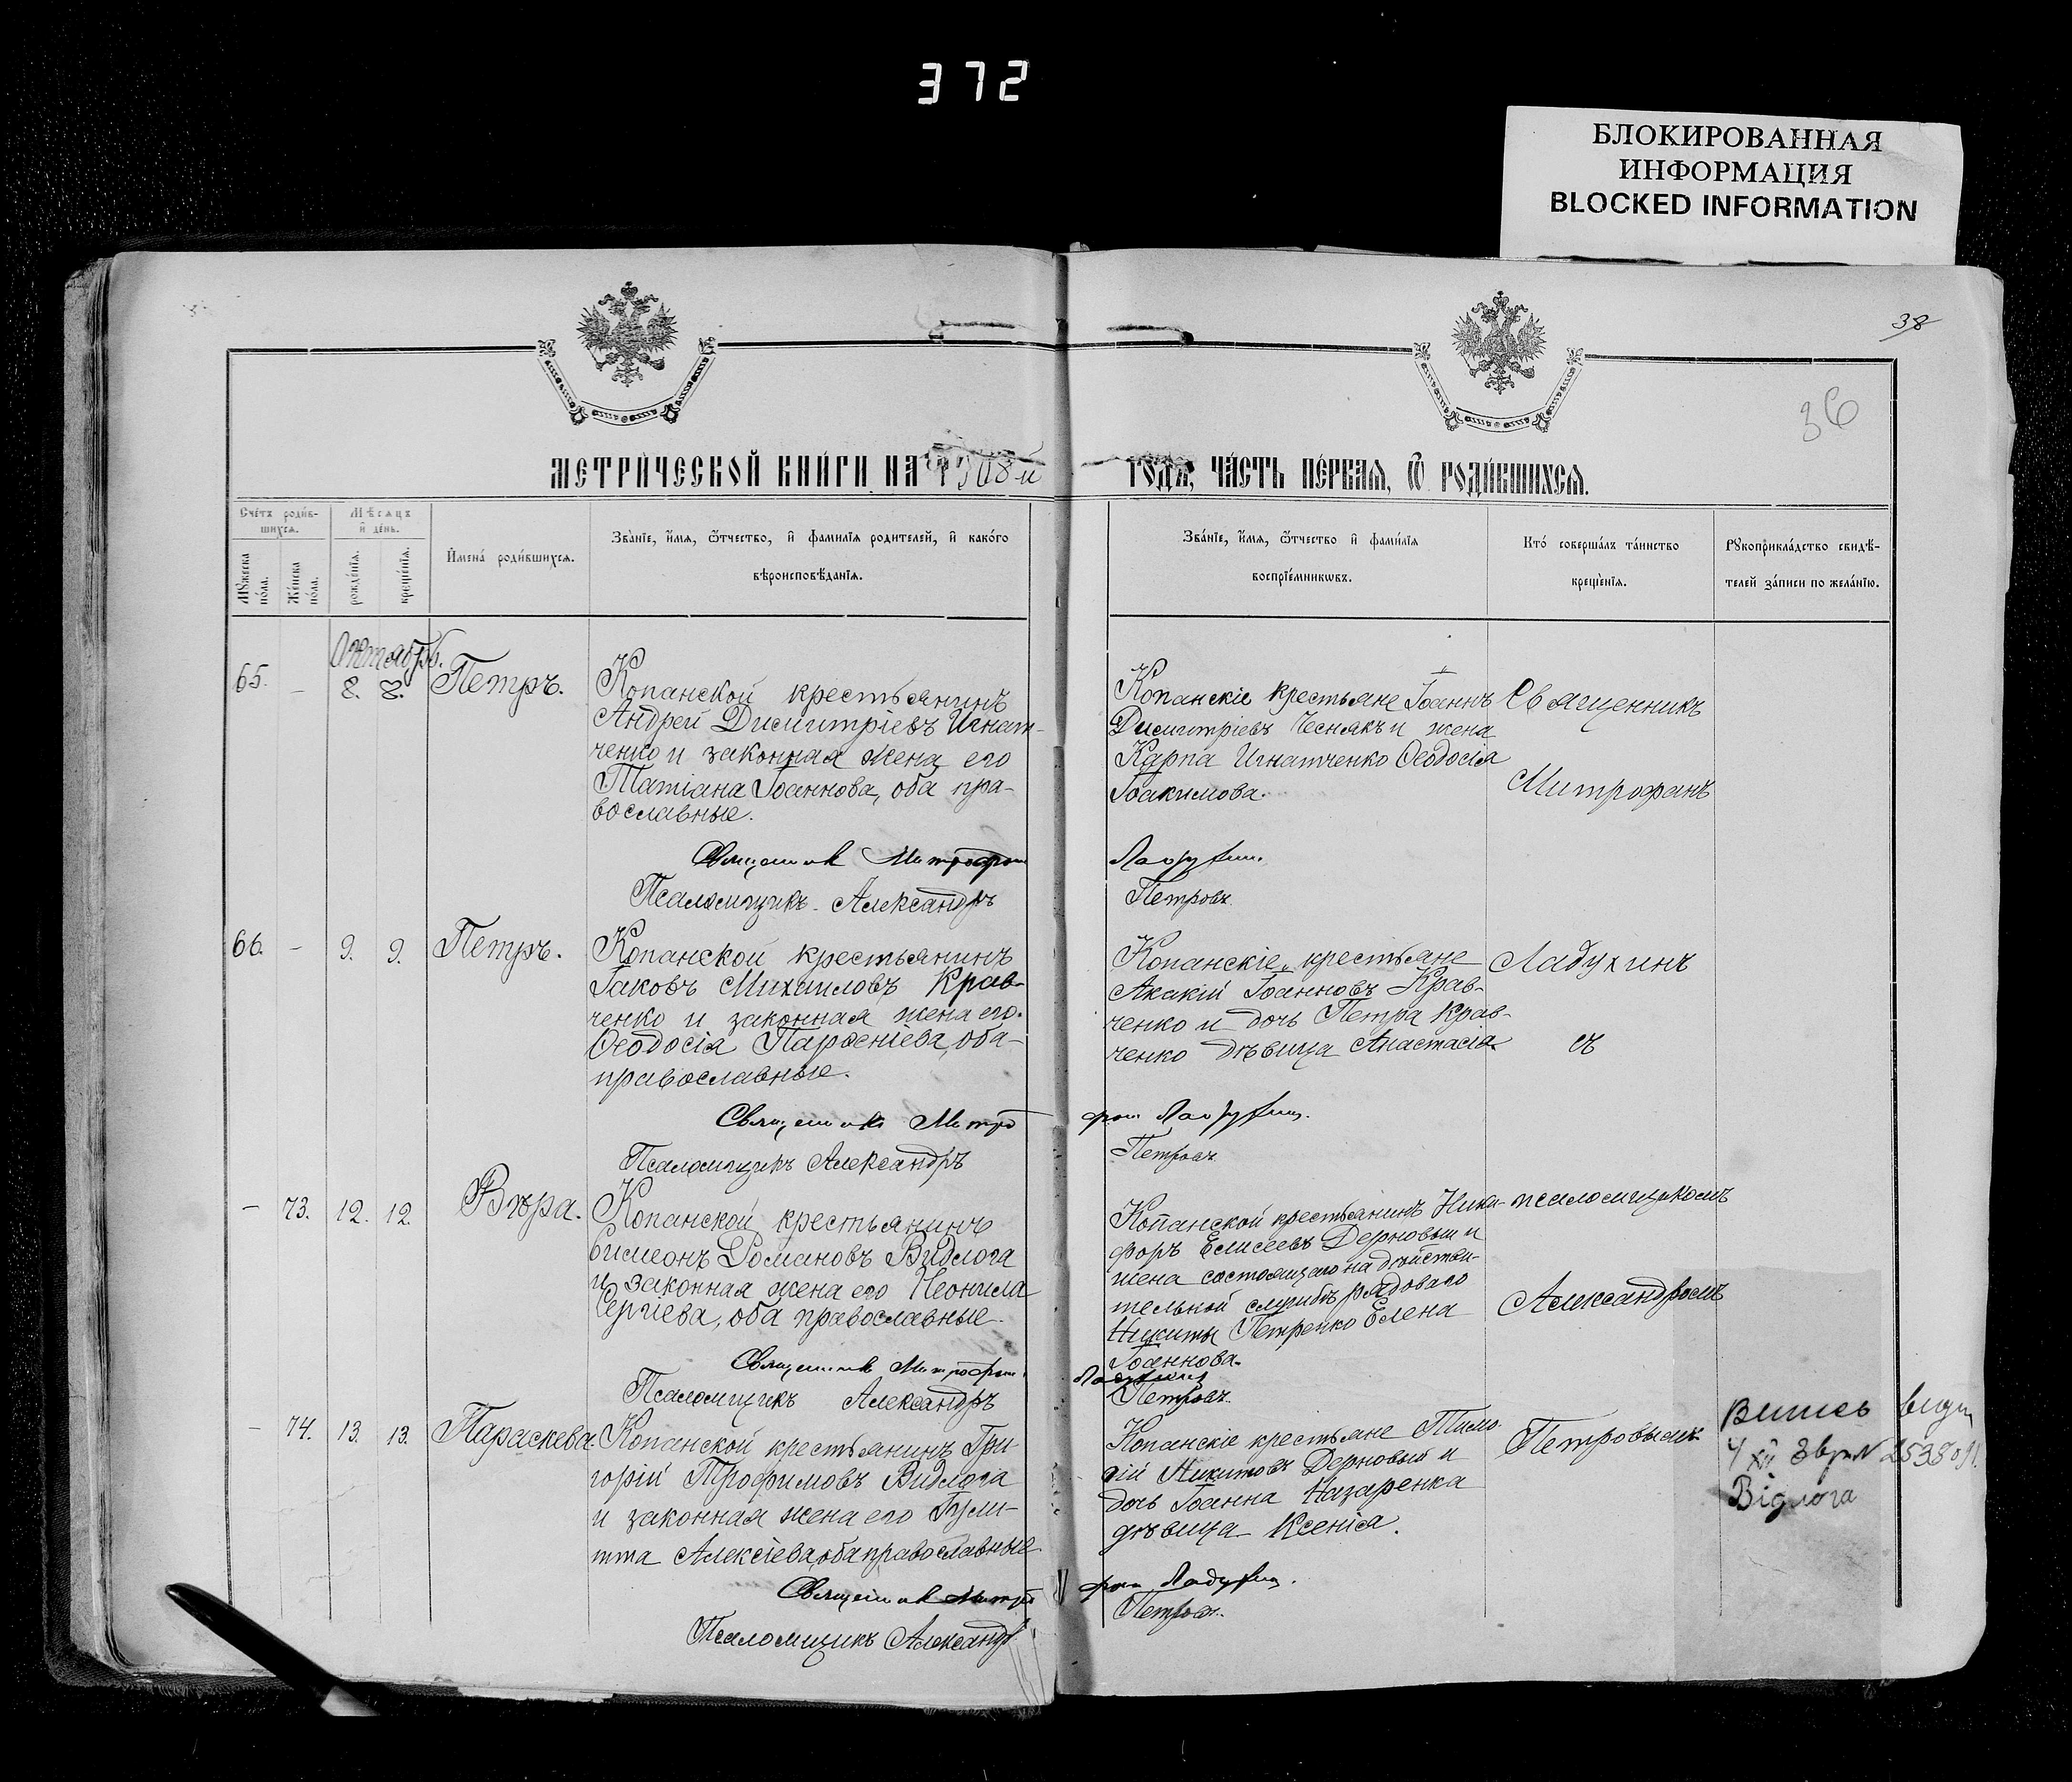 372
БЛОКИРОВАННАЯ
ИНФОРМАЦИЯ
BLOCKED INFORMATION
38
36
МЕТРИЧЕСКОЙ КНИГИ НА 1908й
ГОДЪ, ЧАСТЬ ПЕРВАЯ, Ѡ РОДИВШИХСЯ.
Счетъ родив-
шихся.
Мужеска
пола.
Женска
пола.
Мѣсяцъ
и день.
рожденія.
крещенія.
Имена родившихся.
Званіе, имя, ѿчество, и фамилія родителей, и какого
вѣроисповѣданія.
Званіе, имя, ѿчество и фамилія
воспріемниковъ.
Кто совершалъ таинство
крещенія.
Рукоприкладство свидѣ-
телей записи по желанію.
Октябрь.
65. – 8. 8. Петръ.
Копанской крестьянинъ
Андрей Димитріевъ Игнат-
ченко и законная жена его
Татіана Іоаннова, оба пра-
вославные.
Копанскіе крестьяне Іоаннъ
Димитріевъ Чеснакъ и жена
Карпа Игнатченко Ѳеодосія
Іоакимова.
Священникъ
Митрофанъ
Священникъ Митрофанъ Ладухинъ.
Псаломщикъ Александръ Петровъ
66. – 9. 9. Петръ.
Копанской крестьянинъ
Іаковъ Михаиловъ Крав-
ченко и законная жена его
Ѳеодосія Парѳеніева, оба
православные.
Копанскіе крестьяне
Акакій Іоанновъ Крав-
ченко и дочь Петра Крав-
ченко дѣвица Анастасія.
Ладухинъ
съ
Священникъ Митрофанъ Ладухинъ.
Псаломщикъ Александръ Петровъ
– 73. 12. 12. Вѣра.
Копанской крестьянинъ
Симеонъ Романовъ Видлога
и законная жена его Неонила
Сергіева, оба православные.
Копанской крестьянинъ Ники-
форъ Елисеевъ Дерновый и
жена состоящаго на дѣйстви-
тельной службѣ рядоваго
Никиты Петренко Елена
Іоаннова.
псаломщикомъ
Александромъ
Священникъ Митрофанъ Ладухинъ
Псаломщикъ Александръ Петровъ.
– 74. 13. 13. Параскева.
Копанской крестьянинъ Гри-
горій Трофимовъ Видлога
и законная жена его Іули-
тта Алексіева, оба православные
Копанскіе крестьяне
Никитовъ Дерновый и
дочь Іоанна Назаренка
дѣвица Ксенія.
Петровымъ.
Відлога
Священникъ Митрофанъ Ладухинъ.
Псаломщикъ Александръ Петровъ.